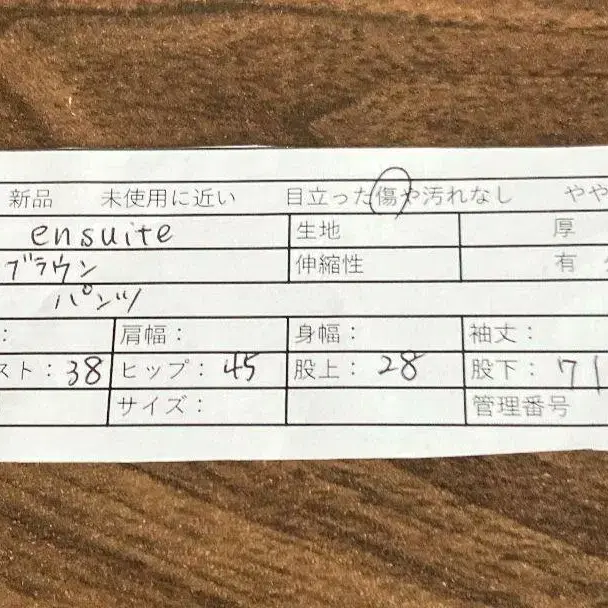 新品 未使用に近い 目立った傷や汚れなし やや
ensuite 生地 厚
ブラウン 伸縮性 有
パンツ
: 肩幅: 身幅: 袖丈:
スト: 38 ヒップ: 45 股上: 28 股下: 71
サイズ: 管理番号